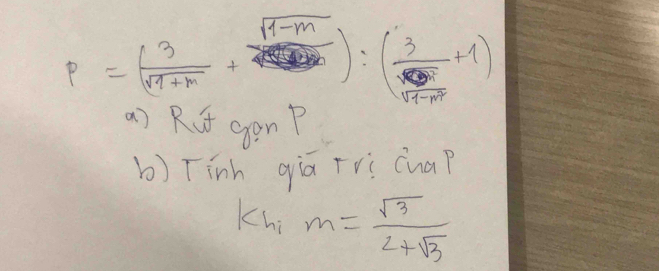 P = (3/√(1+m) + √(1-m)) : (3/√(1-m²) + 1)
a) Rút gọn P
b) Tính giá trị của P
Khi m = √3/(2+√3)